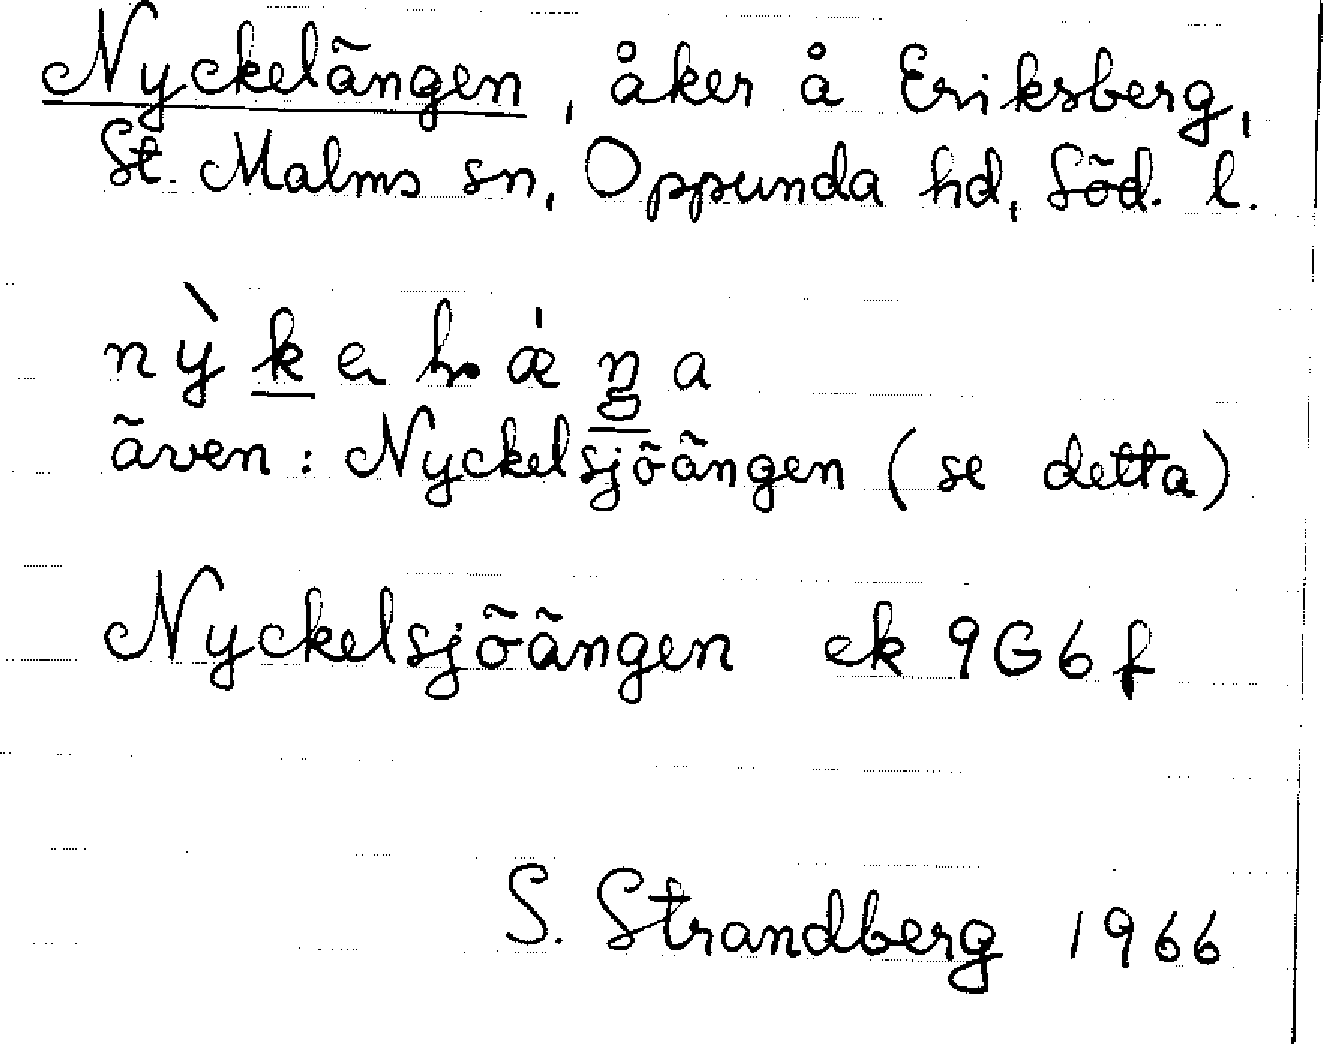 Nyckelängen, åker å Eriksberg,
St. Malms sn, Oppunda hd, Söd. l.
även: Nyckelsjöängen (se detta)
Nyckelsjöängen ek 9G6f
S. Strandberg 1966